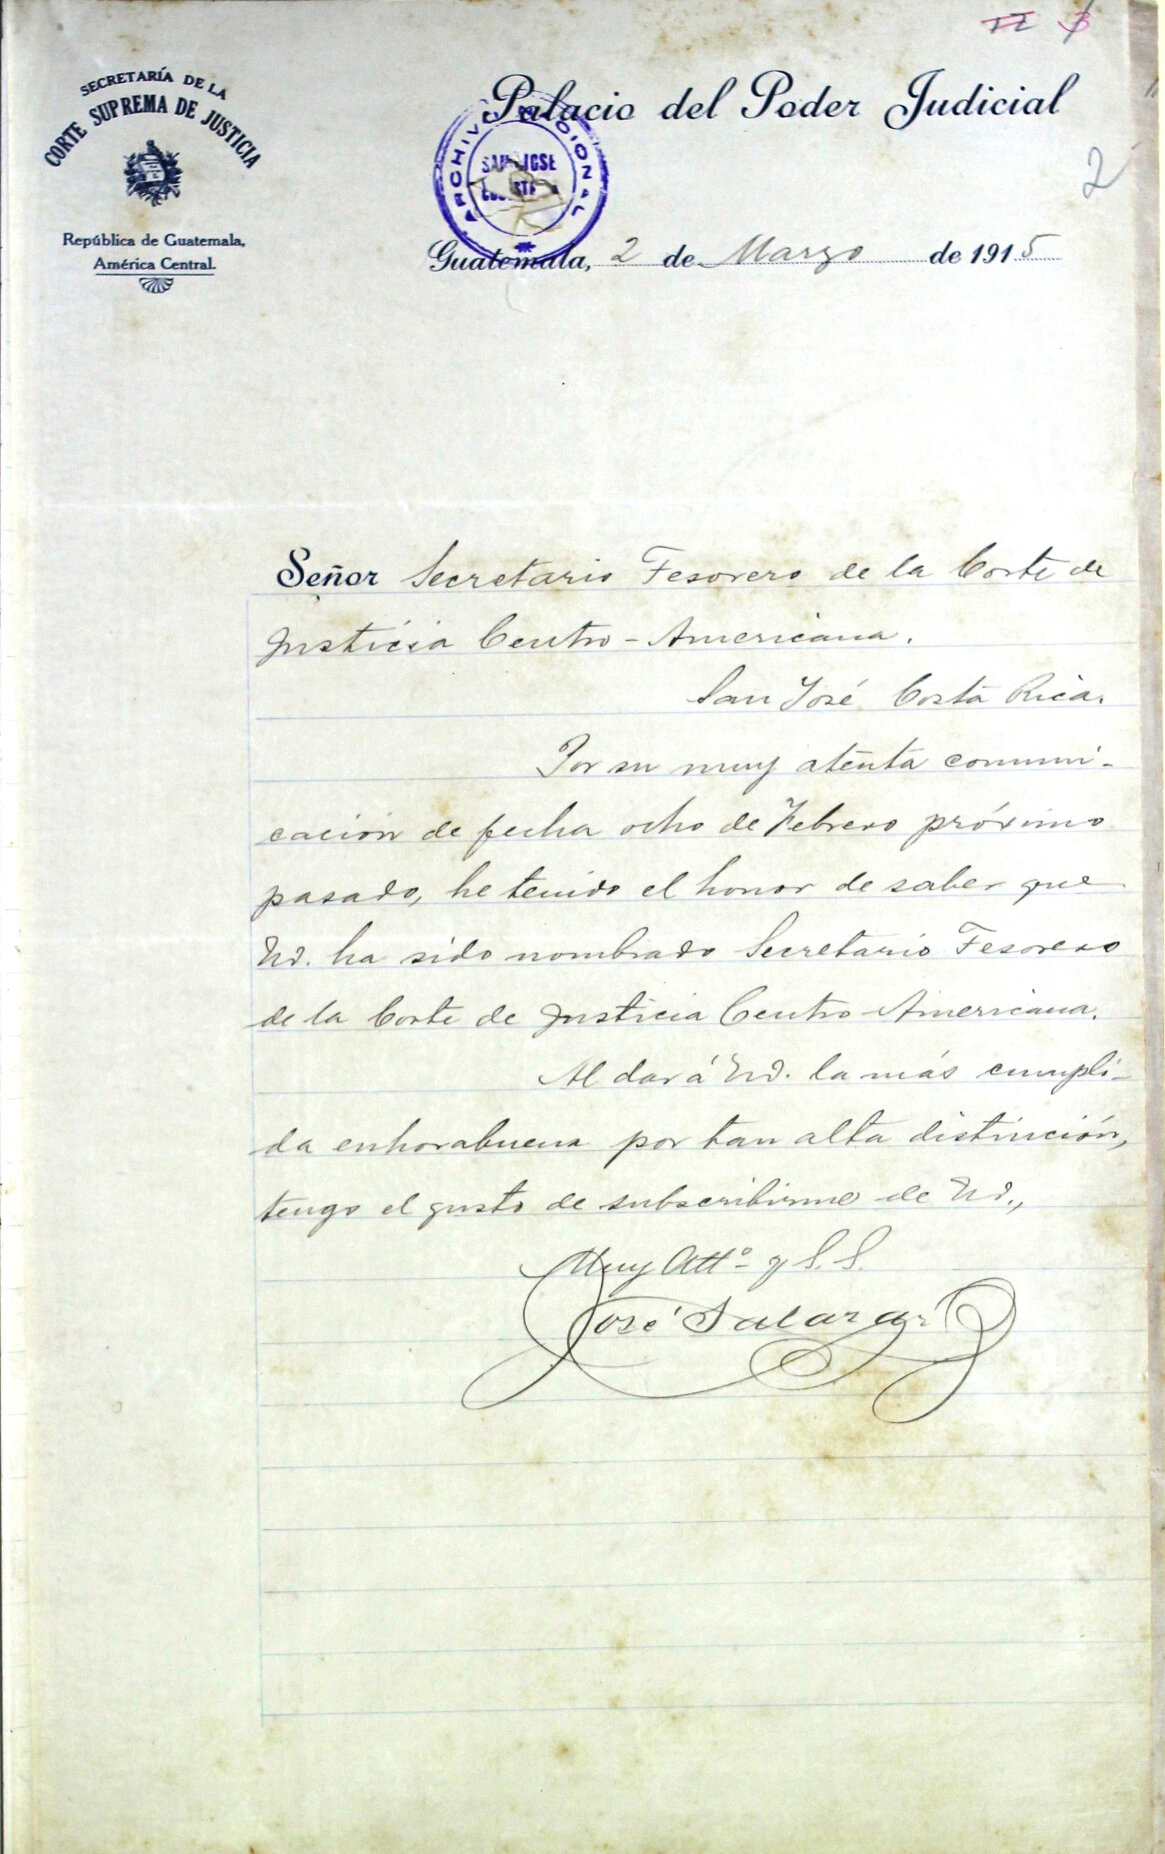 SECRETARÍA DE LA
CORTE SUPREMA DE JUSTICIA
República de Guatemala,
América Central.
Palacio del Poder Judicial
ARCHIVO NACIONAL
SAN JOSE
2
Guatemala, 2 de Marzo de 1915
Señor Secretario Tesorero de la Corte de
Justicia Centro-Americana.
San José, Costa Rica.
Por su muy atenta comuni-
cación de fecha ocho de Febrero próximo
pasado, he tenido el honor de saber que
Ud. ha sido nombrado Secretario Tesorero
de la Corte de Justicia Centro-Americana.
Al dar á Ud. la más cumpli-
da enhorabuena por tan alta distinción,
tengo el gusto de subscribirme de Ud.,
Muy Attº y S. S.
José Salazar